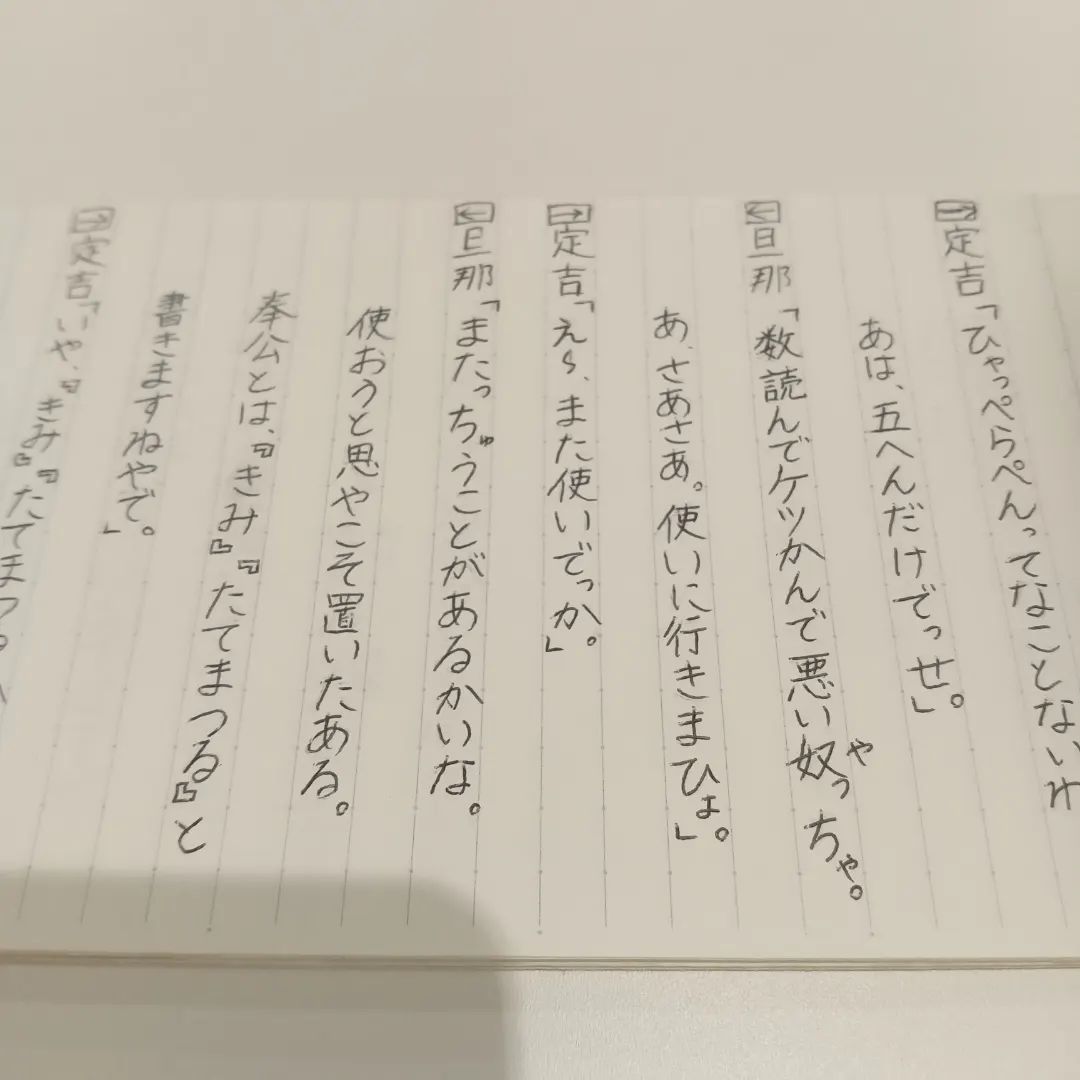 →定吉「ひゃっぺらぺんってなことないわ
あは、五へんだけでっせ。」
←旦那「数読んでケツかんで悪い奴っちゃ。
や
あ、さあさあ。使いに行きまひょ。」
→定吉「え〜、また使いでっか。」
←旦那「またっちゅうことがあるかいな。
使おうと思やこそ置いたある。
奉公とは、『きみ』『たてまつる』と
書きますねやで。」
→定吉「いや、『きみ』『たてまつる